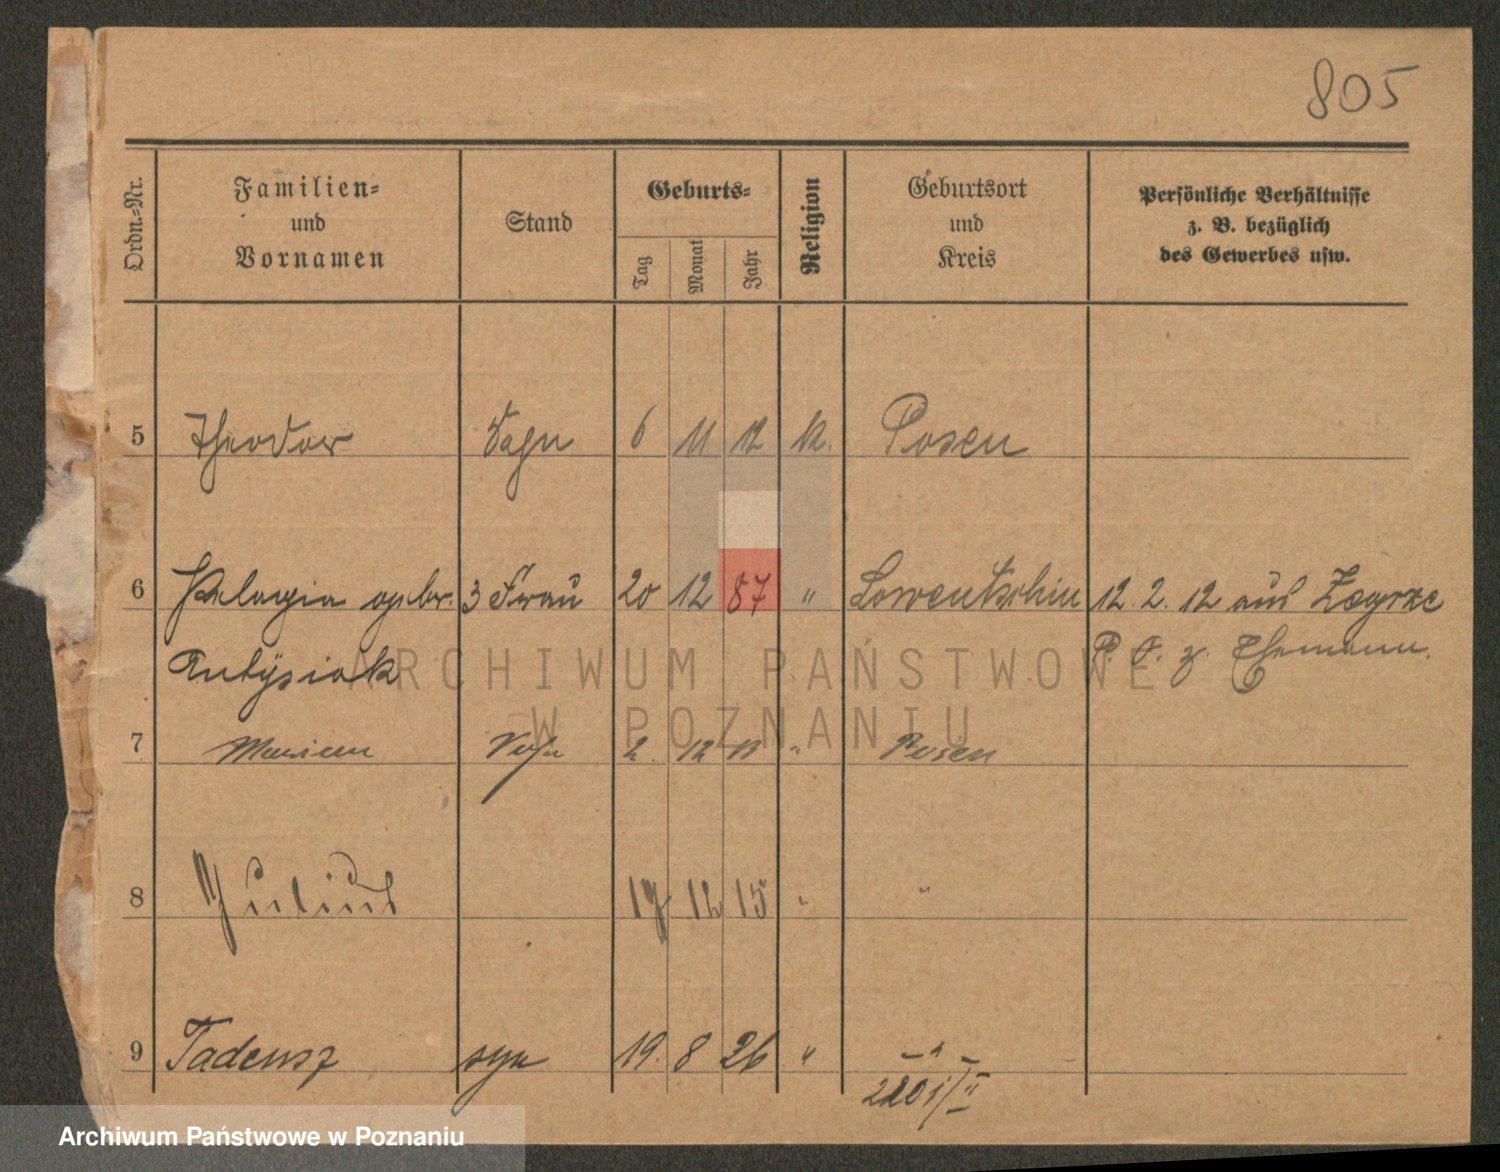 805
Ordn.-Nr.
Familien-
und
Vornamen
Stand
Geburts-
Tag
Monat
Jahr
Religion
Geburtsort
und
Kreis
Persönliche Verhältnisse
z. B. bezüglich
des Gewerbes usw.
5 Theodor Sohn 6 11 12 k. Posen
6 Pelagia gebr. 3 Frau 20 12 87 " 12. 2. 12 aus Zegrze
Antysiak P. S. z.
7 Marian Sohn 2. 12 13 " Posen
8 Julius 17 12 15 " "
9 Tadeusz syn 19. 8 26 " — " —
ARCHIWUM PAŃSTWOWE
W POZNANIU
Archiwum Państwowe w Poznaniu